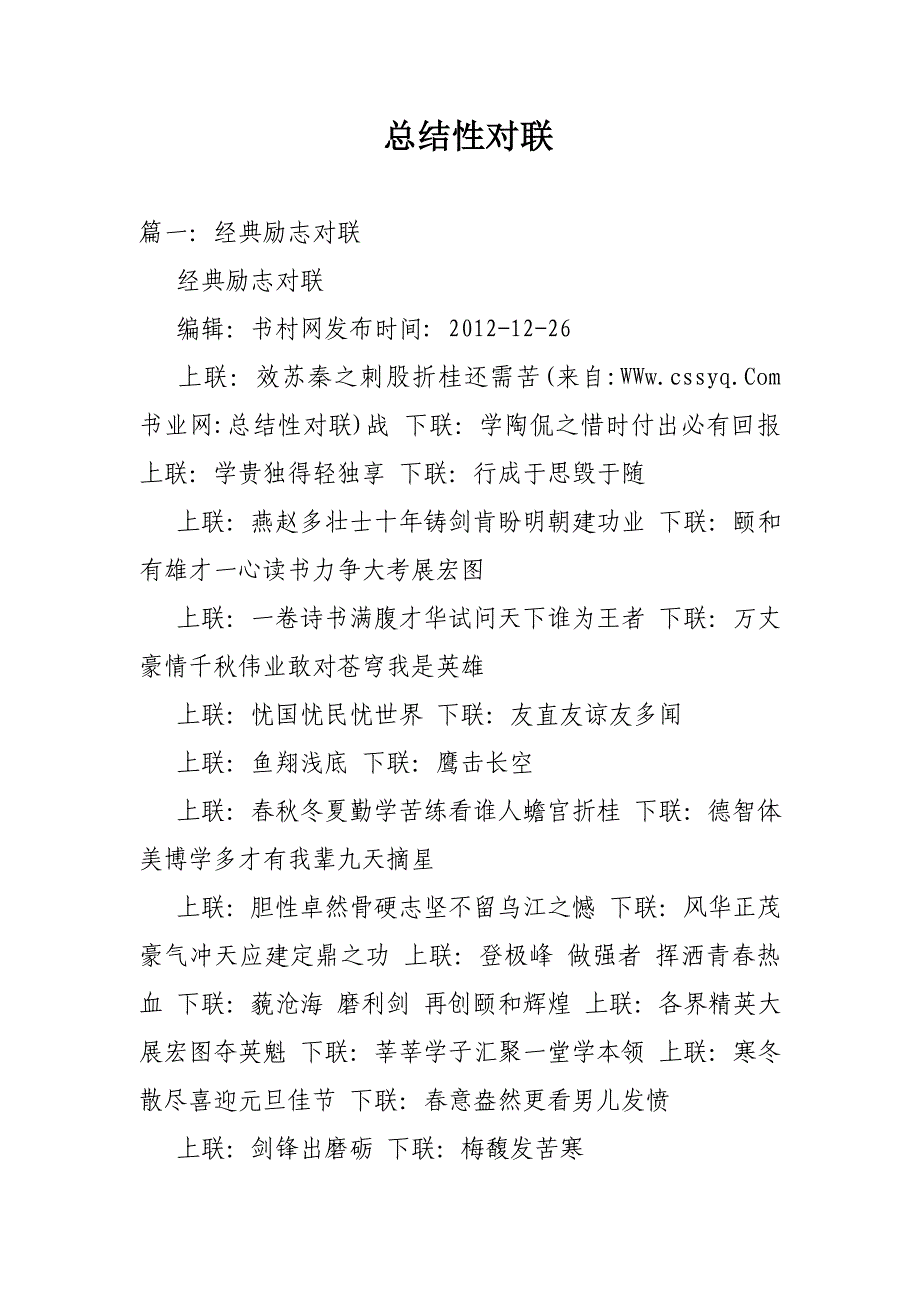 总结性对联
篇一：经典励志对联
经典励志对联
编辑：书村网发布时间：2012-12-26
上联：效苏秦之刺股折桂还需苦(来自:WWw.cssyq.Com
书业网:总结性对联)战 下联：学陶侃之惜时付出必有回报
上联：学贵独得轻独享 下联：行成于思毁于随
上联：燕赵多壮士十年铸剑肯盼明朝建功业 下联：颐和
有雄才一心读书力争大考展宏图
上联：一卷诗书满腹才华试问天下谁为王者 下联：万丈
豪情千秋伟业敢对苍穹我是英雄
上联：忧国忧民忧世界 下联：友直友谅友多闻
上联：鱼翔浅底 下联：鹰击长空
上联：春秋冬夏勤学苦练看谁人蟾宫折桂 下联：德智体
美博学多才有我辈九天摘星
上联：胆性卓然骨硬志坚不留乌江之憾 下联：风华正茂
豪气冲天应建定鼎之功 上联：登极峰 做强者 挥洒青春热
血 下联：藐沧海 磨利剑 再创颐和辉煌 上联：各界精英大
展宏图夺英魁 下联：莘莘学子汇聚一堂学本领 上联：寒冬
散尽喜迎元旦佳节 下联：春意盎然更看男儿发愤
上联：剑锋出磨砺 下联：梅馥发苦寒